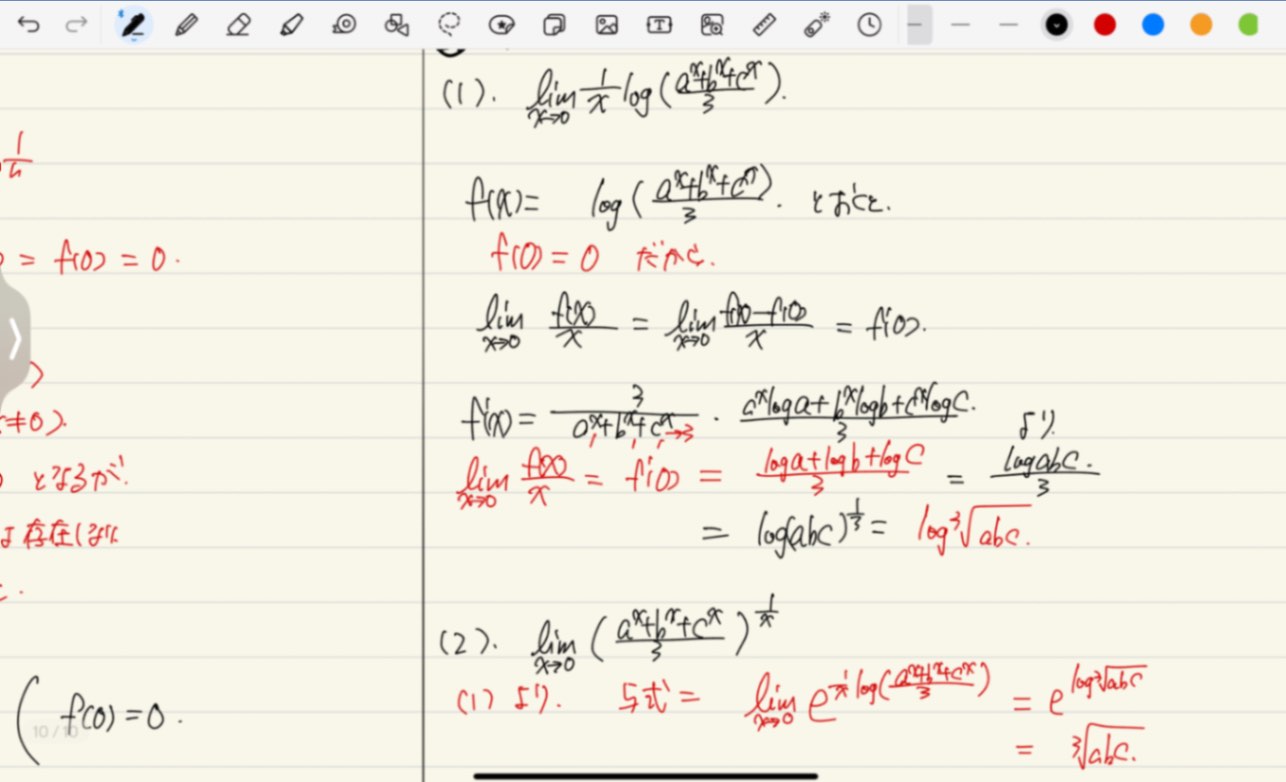 1/n
= f(0) = 0.
≠0).
となるが、
存在しない
( f'(0) = 0.
10 / 10
(1). lim_{x→0} 1/x log( (a^x+b^x+c^x)/3 ).
f(x) = log( (a^x+b^x+c^x)/3 ). とおくと.
f(0) = 0 だから.
lim_{x→0} f(x)/x = lim_{x→0} (f(x)-f(0))/x = f'(0).
f'(x) = 3/(a^x+b^x+c^x →3) · (a^x log a + b^x log b + c^x log c)/3. より.
lim_{x→0} f(x)/x = f'(0) = (log a + log b + log c)/3 = log abc/3.
= log(abc)^{1/3} = log ³√abc.
(2). lim_{x→0} ( (a^x+b^x+c^x)/3 )^{1/x}
(1) より. 与式 = lim_{x→0} e^{1/x log( (a^x+b^x+c^x)/3 )} = e^{log ³√abc}
= ³√abc.